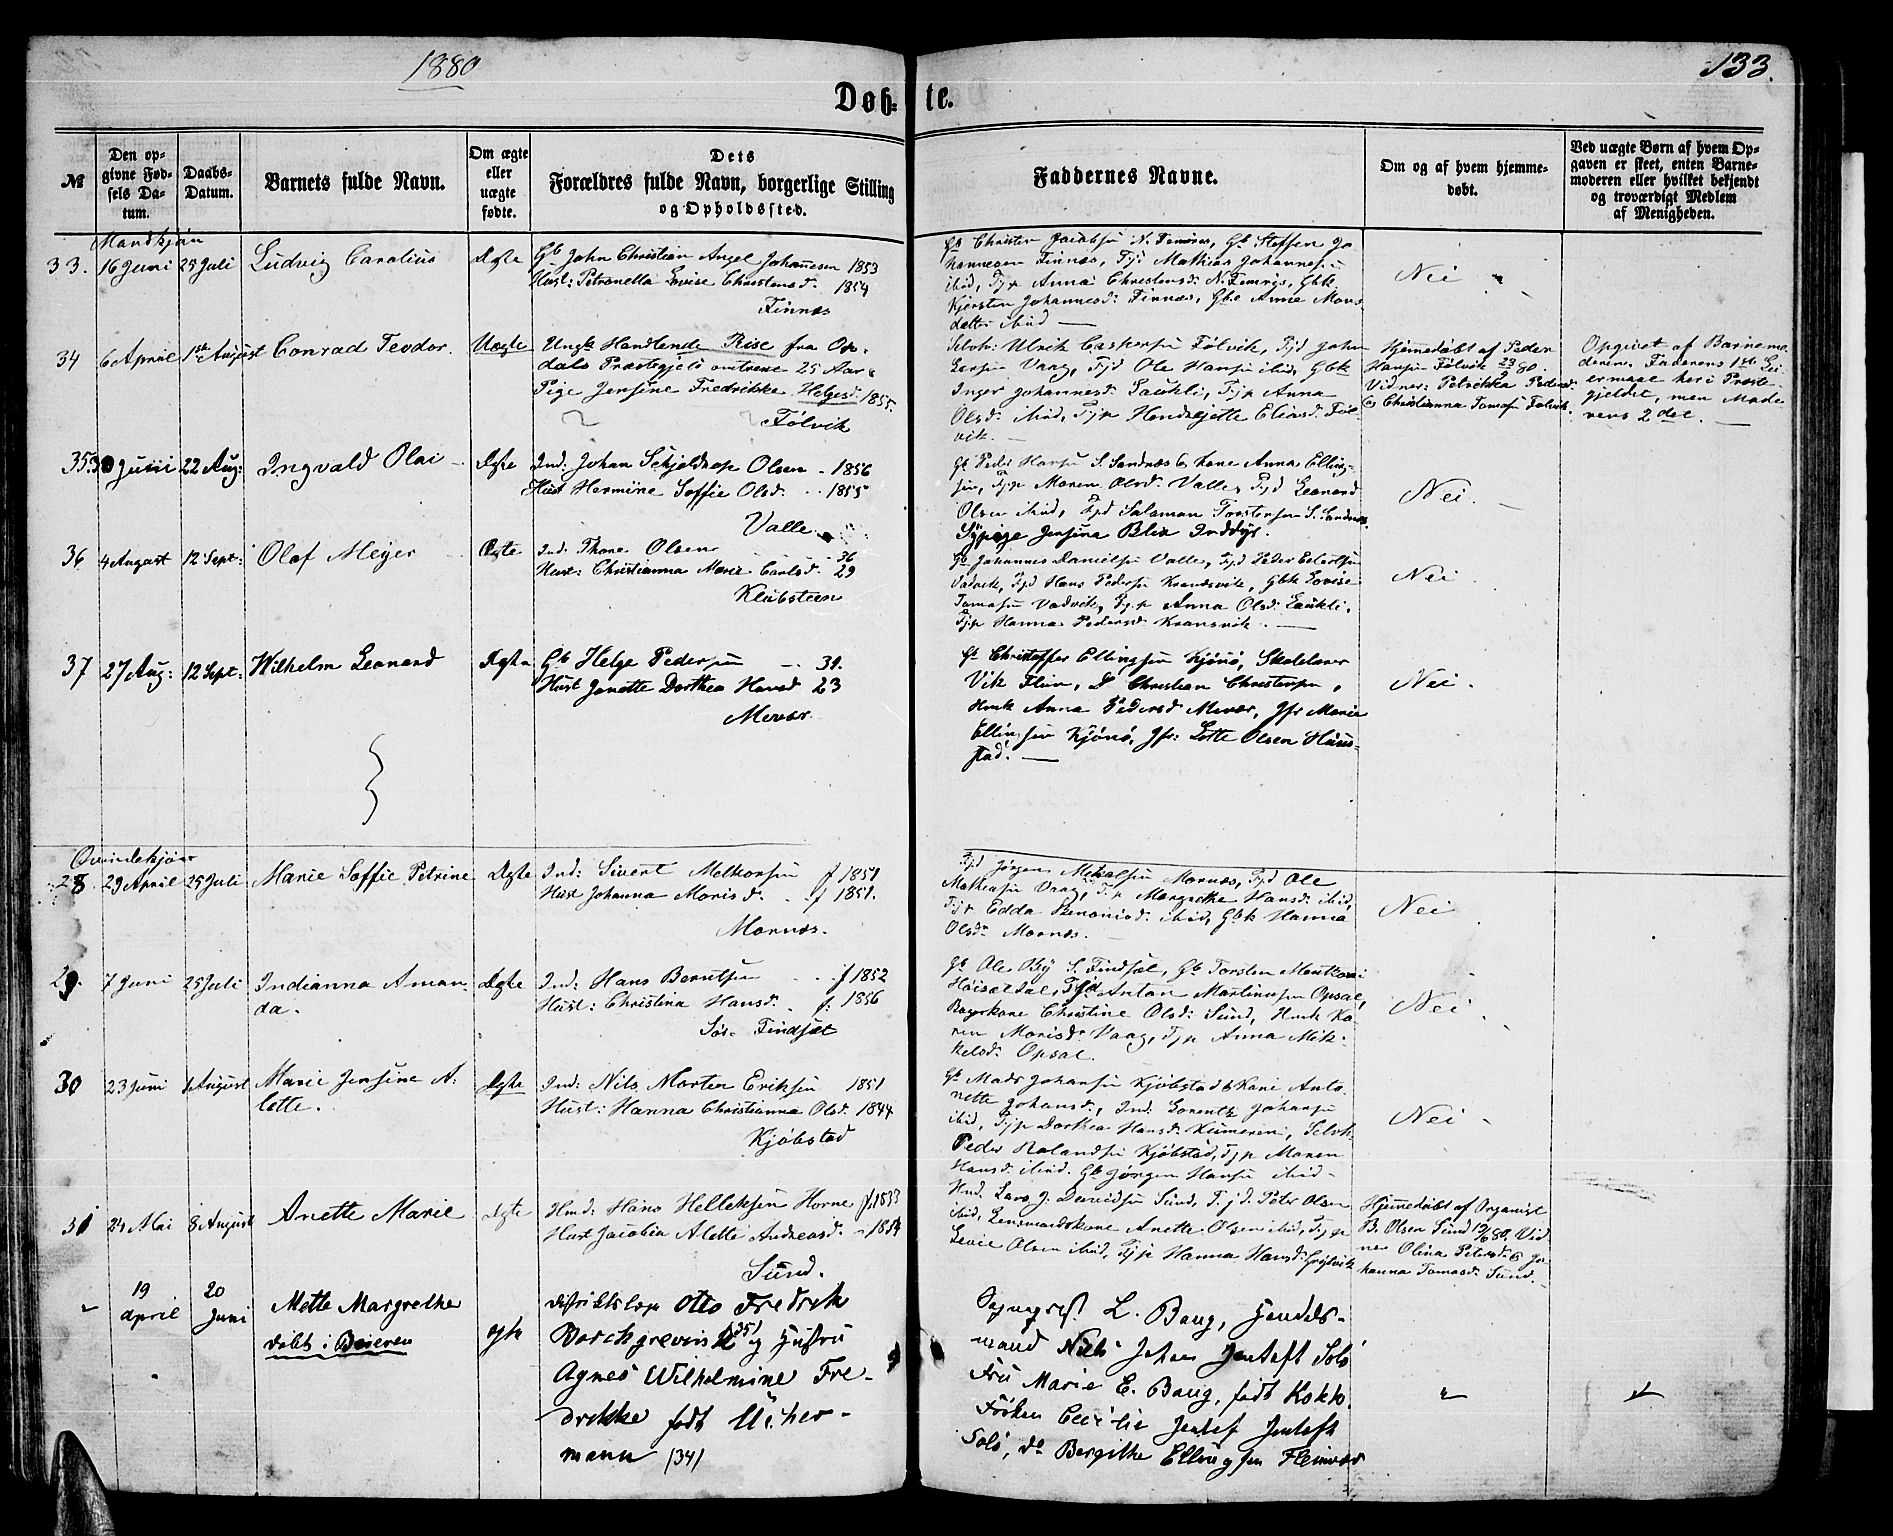 1880
133.
Døb-te.
№
Den op-
givne Fød-
sels Da-
tum.
Daabs-
Datum.
Barnets fulde Navn.
Om ægte
eller
uægte
fødte.
Dets
Forældres fulde Navn, borgerlige Stilling
og Opholdssted.
Faddernes Navne.
Om og af hvem hjemme-
døbt.
Ved uægte Børn af hvem Op-
gaven er skeet, enten Barne-
moderen eller hvilket bekjendt
og troværdigt Medlem
af Menigheden.
Mandkjøn
33. 16 Juni 25 Juli Ludvig Carolius Ægte
Gb John Christian Angel Johannesen 1853
Hust: Petronella Lovise Christensd. 1854
Finnæs
Gb Christen Jacobsen N. Femøres, Gb Steffen Jo
hannesen Finnæs, Tjd Mathias Johannesen
ibid, Tjp Anna Christensd: N. Femris, Gbk
Kjersten Johannesd: Finnæs, Gbk Anne Mons
datter ibid
Nei
34 6 April 1ste August Conrad Teodor. Uægte
Ungk Handlende Riise fra Op-
dals Præstegjeld omtrent 25 Aar &
Pige Jensine Fredrikke Helgesd. 1855.
Følvik
Selvh: Ulrik Caspersen Følvik, Tjd John
Larsen Vaag, Tjd Ole Hansen ibid, Gbk
Inger Johannesd: Laukli, Tjp Anna
Olsd: ibid, Tjp Hendrejette Eliasd Føl
vik.
Hjemmedøbt af Peder
Hansen Følvik 23/5 80.
Vidner: Petrikka Pedersd.
& Christianna Tomasen Følvik.
Opgivet af Barnemo
deren. Faderens 1ste Lei
ermaal her i Præste-
gjeldet, men Mode-
rens 2det.
35. 30 Juni 22 Aug: Ingvald Olai Ægte
Ind: Johan Schjeldrop Olsen 1856
Hust Hermine Soffie Olsd: 1855
Valle.
Gb Peder Hansen S. Sandnæs & Kone Anna Elling-
sen, Tjp Maren Olsd: Valle, Tjd Leonard
Olsen ibid, Tjd Salamon Torstensen S. Sandnæs
Sypige Jensina Blix Inddyr.
Nei.
36 4 August 12 Sept: Olaf Meyer Ægte
Ind: Thore Olsen 36
Hust: Christianna Marie Carlsd. 29
Klubsteen
Gb Johannes Danielsen Valle, Tjd Peder Edvartsen
Vadvik, Tjd Hans Pedersen Kransvik, Gbk Lovise
Tomasen Vadvik, Tjp Anna Olsd: Laukli,
Tjp Hanna Pedersd: Kransvik.
Nei
37 27 Aug: 12 Sept: Wilhelm Leonard Ægte
Gb Helge Pedersen 31.
Hust Janette Dorthea Hansd 23
Mevær.
Gb Christoffer Ellingsen Kjønø, Skolelærer
Vik Flein, D Christian Christensen,
Hmk Anna Pedersd Mevær, Jfr Marie
Ellingsen Kjønø, Jfr: Lotte Olsen Hauns-
stad.
Nei.
Qvindekjøn
28. 29 April 25 Juli Marie Soffie Petrine Ægte
Ind: Sivert Melkersen f 1851
Hust Johanna Morisd. f 1851.
Mornæs.
Tjd Jørgen Mikalsen Mornæs, Tjd Ole
Mathiasen Vaag, Tjp Margrethe Hansd: ibid,
Tjp Edda Simonisd: ibid, Gbk Hanna
Olsd: Mornæs.
Nei
29. 7 Juni 25 Juli Indianna Aman-
da. Ægte
Ind: Hans Berntsen f 1852
Hust: Christina Hansd. f: 1856
Sør- Findsæt
Gb Ole Bøy S. Findsæt, Gb Torsten Montsen
Høisetdal, Tjd Antan Martinussen Opsal,
Bagerkone Christine Olsd: Sund, Hmk Ka-
ren Morisd: Vaag, Tjp Anna Mik-
kelsd: Opsal.
Nei
30 23 Juni 1 August Marie Jensine A-
lette. Ægte
Ind: Nils Morten Eriksen 1851
Hust: Hanna Christianna Olsd. 1844
Kjøbstad
Gb Mads Johansen Kjøbstad & Kone Anto
nette Johansd:, Ind: Lorentz Johansen
ibid, Tjp Dorthea Hansd: Kumeren, Selvh
Peder Rolandsen Kjøbstad, Tjp Maren
Hansd: ibid. Gb Jørgen Hansen ibid
Nei
31 24 Mai 8 August Anette Marie Ægte
Hmd: Hans Helleksen Horne f. 1833
Hust Jacobia Alette Andreasd. 1854
Sund.
Hmd. Lars J. Davidsen Sund, Tjd: Peter Olsen
ibid, Lensmandskone Anetta Olsen ibid, Tjp
Levie Olsen ibid, Tjp Hanna Hansd: Grøtvik
Hjemmedøbt af Organist
B. Olsen Sund 13/6 80. Vid
ner Olina Petersd. & Jo
hanna Tomasd: Sund.
19
April
20
Juni
Mette Margrethe
døbt i Beieren
ægte
Distriktslæge Otto Fredrik
Borchgrevink (35) og Hustru
Agnes Wilhelmine Fre-
drikke født Ucher-
mann (34)
Sognepræst L. Baug, Handels-
mand Niels Johan Jentoft Solø
Fru Marie E. Baug, født Kokk.
Frøken Cecilie Jentof Jentoft
Solø, do Bergithe Ellingsen Fleinvær